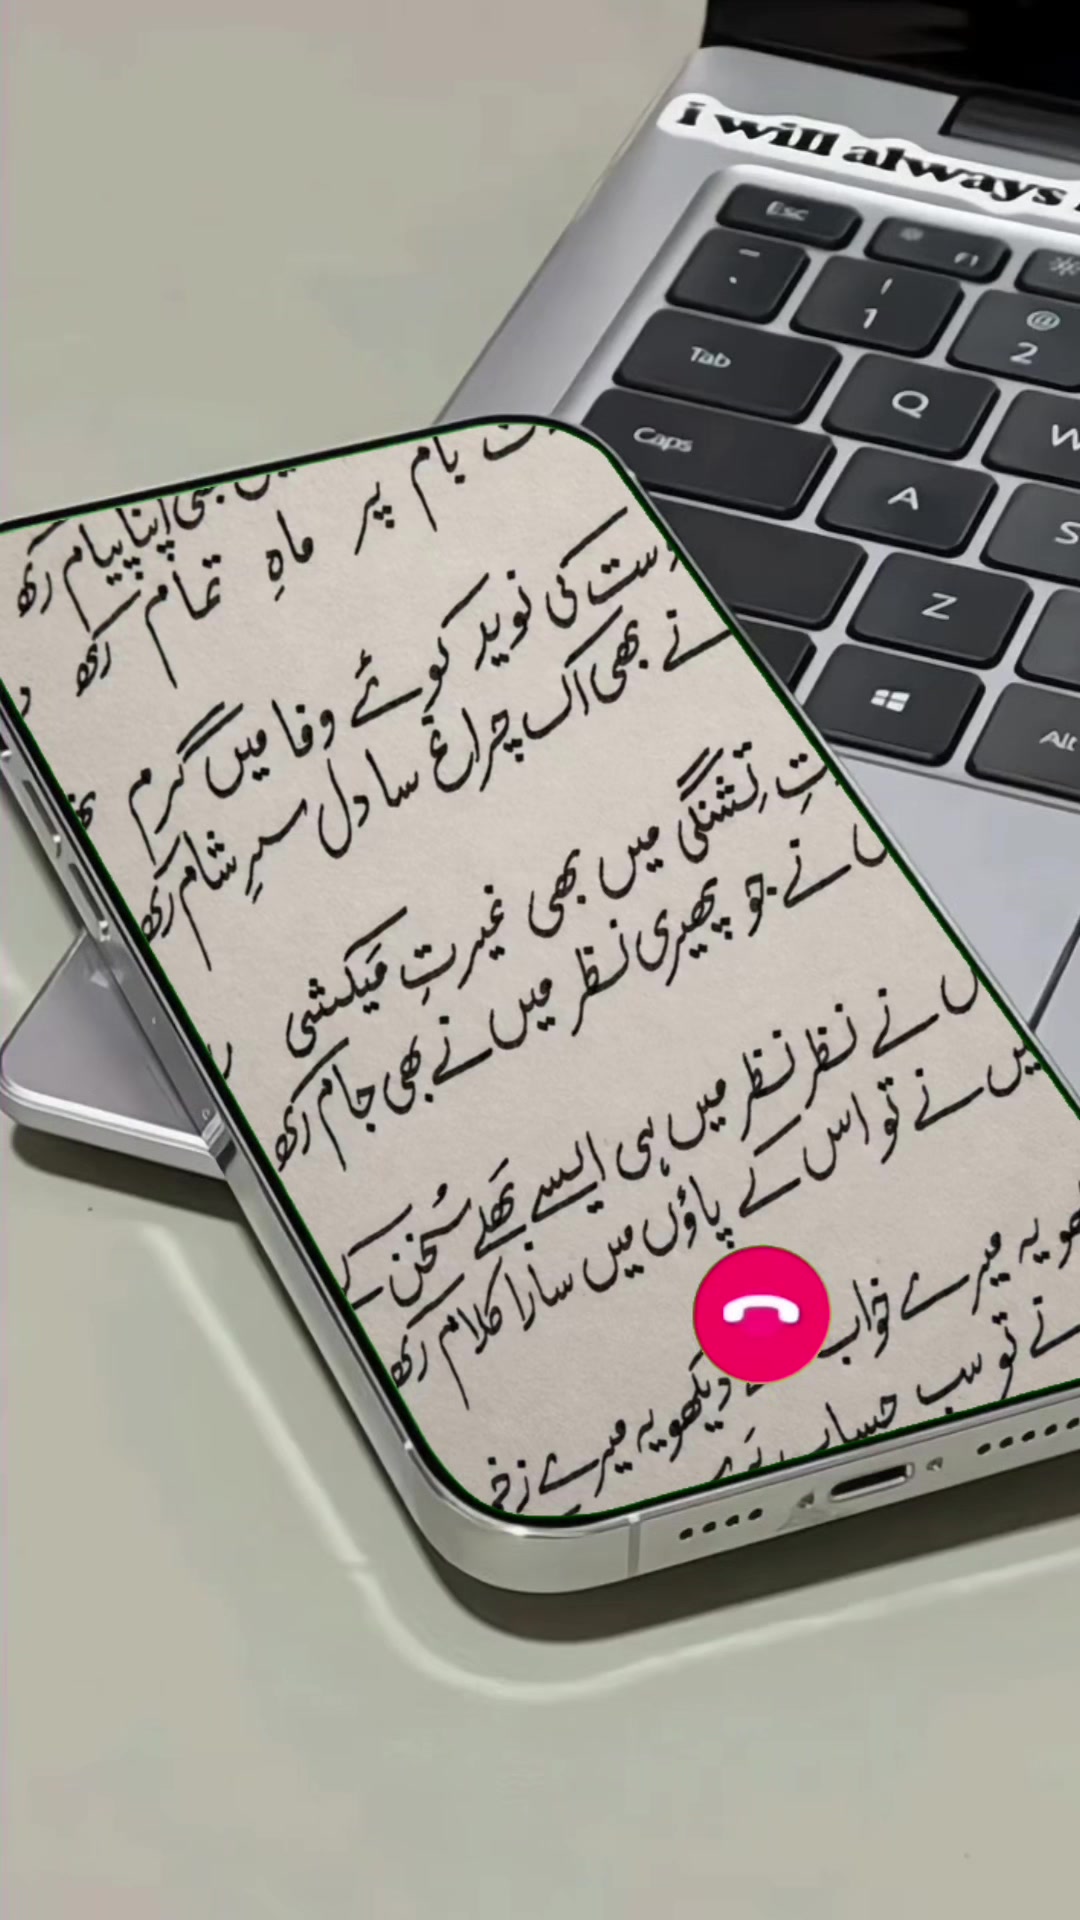 i will always
Esc
F1
1
@
2
Tab
Q
W
Caps
A
S
Z
Alt
بام
اپنا پیام رکھ
پر ماہِ تمام رکھ
کی نوید کوئے وفا میں گرم
نے بھی اک چراغ سا دل سرِ شام رکھ
تِشنگی میں بھی غیرتِ مَیکشی
نے جو پھیری نظر میں نے بھی جام رکھ
نے نظر نظر میں ہی ایسے بھَلے سُخن کے
نے تو اس کے پاؤں میں سارا کلام رکھ
یہ میرے خواب دیکھو یہ میرے
نے تو سب حساب